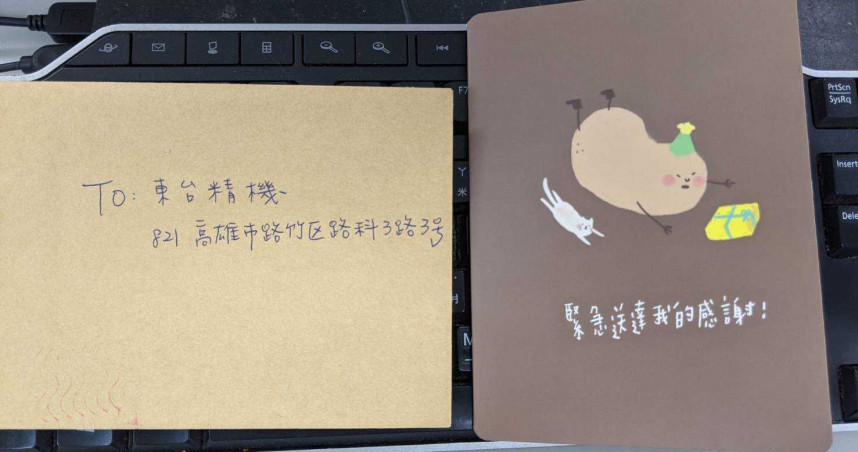 To: 東台精機
821 高雄市路竹区路科3路3号
緊急送達我的感謝!
F7
PrtScn
SysRq
Insert
Dele
ㄚ
米
M